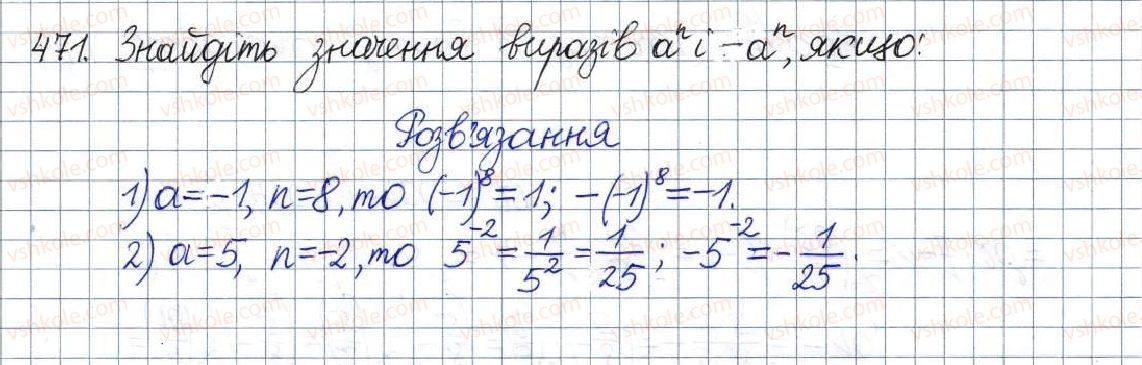 471. Знайдіть значення виразів aⁿ і -aⁿ, якщо:
Розв'язання
1) a=-1, n=8, то (-1)⁸=1; -(-1)⁸=-1.
2) a=5, n=-2, то 5⁻²=1/5²=1/25; -5⁻²=-1/25.